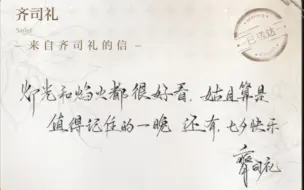 齐司礼
Sariel
— 来自齐司礼的信 —
已送达
灯光和焰火都很好看，姑且算是
值得记住的一晚 还有，七夕快乐
齐司礼